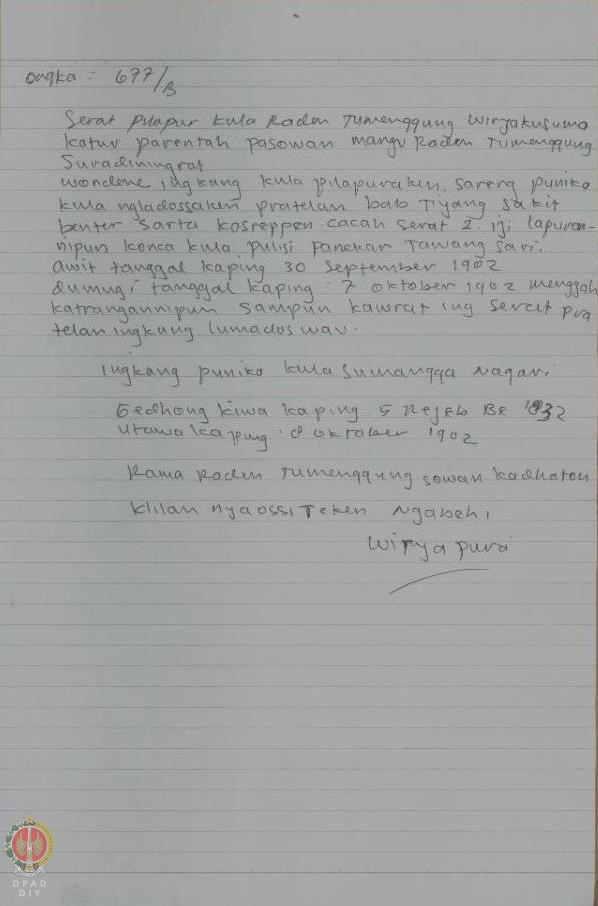 Ongka : 677/B
Serat pilapur kula Raden Tumenggung Wirjakusuma
katur parentah pasowan mangu Raden Tumenggung
Suradiningrat
wondene ingkang kula pilapuraken, sareng puniko
kula ngladossaken pratelan bab Tiyang sakit
benter sarta kasreppen cacah serat 2. iji lapuran-
nipun konca kula pulisi panekar Tawang Sari.
awit tanggal kaping 30 September 1902
dumugi tanggal kaping : 7 oktober 1902 menggah
katrangannipun sampun kawrat ing serat pra
telan ingkang lumados wau.
Ingkang puniko kula sumangga Nagari
Gedhong kiwa kaping 5 Rejeb Be 1832
utawa kaping : 8 oktober 1902
Rama Raden Tumenggung sowan kadhaton
klilan nyaossi Teken Ngabehi
Wirya pura
DPAD
DIY